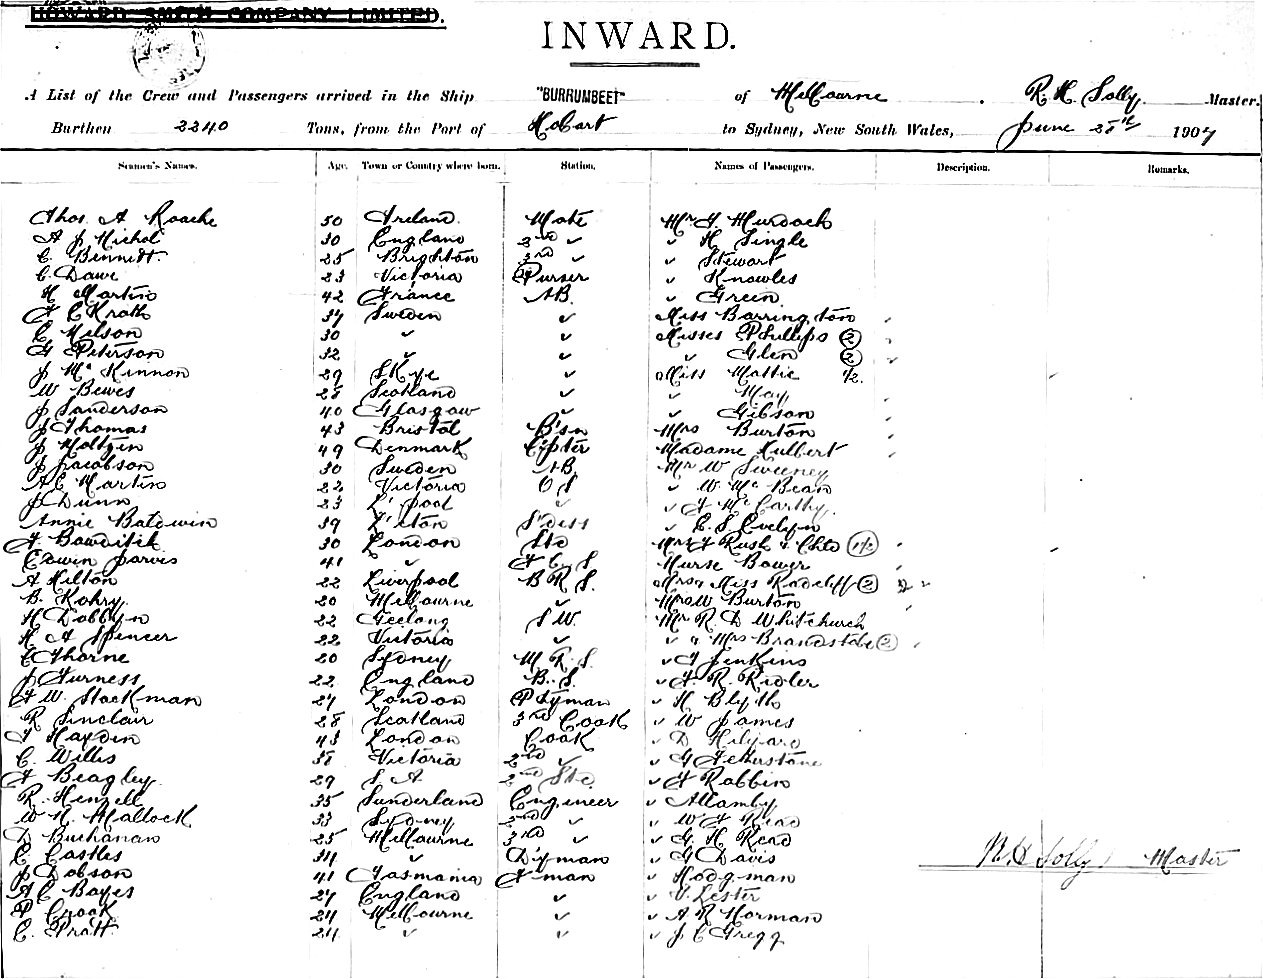 HOWARD SMITH COMPANY LIMITED.
INWARD.
A List of the Crew and Passengers arrived in the Ship "BURRUMBEET" of Melbourne . R. H. Solly. Master.
Burthen 2240 Tons, from the Port of Hobart to Sydney, New South Wales, June 25th 1907
Seamen's Names. Age. Town or Country where born. Station. Names of Passengers. Description. Remarks.
Thos. A Roache 50 Ireland. Mate Mr J Murdoch
A J Nichol 30 England 2nd ✓ ✓ H Single
C. Bennett. 25 Brighton 3rd ✓ ✓ Stewart
C. Dawe 23 Victoria Purser ✓ Knowles
H Martin 42 France AB. ✓ Green
J C Krath 34 Sweden ✓ Miss Barrington
C Nelson 30 ✓ ✓ Misses Phillips (2)
G Peterson 32 ✓ ✓ ✓ Glen (2)
J McKinnon 29 Skye ✓ Miss Mattie 1/2.
W Bewes 28 Scotland ✓ ✓ May
J Sanderson 40 Glasgow ✓ ✓ Gibson
J Thomas 43 Bristol B'sn Mrs Burton
J Moltzin 49 Denmark C'pter Madame Hulbert
J Jacobson 30 Sweden AB. Mr W Sweeney
A C Martin 22 Victoria O S ✓ W McBean
J Dunn 23 L'pool ✓ ✓ J McCarthy.
Annie Baldwin 39 L'ton S'dess ✓ E. S. Evelyn
J. Bowditch 30 London Std Mrs J Rush & Chld (1 1/2)
Edwin Jarvis 41 ✓ F C S Nurse Bower
A Hilton 22 Liverpool B R S. Mrs & Miss Radcliff (2)
B. Kohry. 20 Melbourne ✓ Mrs W Burton
H Dobbyn 22 Geelong S W. Mr R. D Whitchurch
H A Spencer 22 Victoria ✓ ✓ & Mrs (2)
C Thorne 20 Sydney M R S. ✓ J Jenkins
J Furness 22 England B. S. ✓ J. R. Ridler
J W. Stockman 24 London P'tyman ✓ H Blyth
R Sinclair 28 Scotland 3rd Cook ✓ W James
J Hayden 43 London Cook ✓ D Hilyard
C. Willis 38 Victoria 2nd ✓ ✓ G
J Beagley. 29 S. A 2nd Std ✓ J Robbin
R. Henzell 35 Sunderland Engineer ✓ Allamby
W H. Hallock 33 Sydney 2nd ✓ ✓ W J Read
D Buchanan 25 Melbourne 3rd ✓ ✓ G. H. Read
C Castles 34 ✓ D'yman ✓ G Davis R. H. Solly Master
J Dobson 41 Tasmania F'man ✓ Hodgman
A C Bayes 27 England ✓ ✓ V. Lester
P Crook 24 Melbourne ✓ ✓ A R Norman
C. Pratt 24 ✓ ✓ ✓ J C Gregg